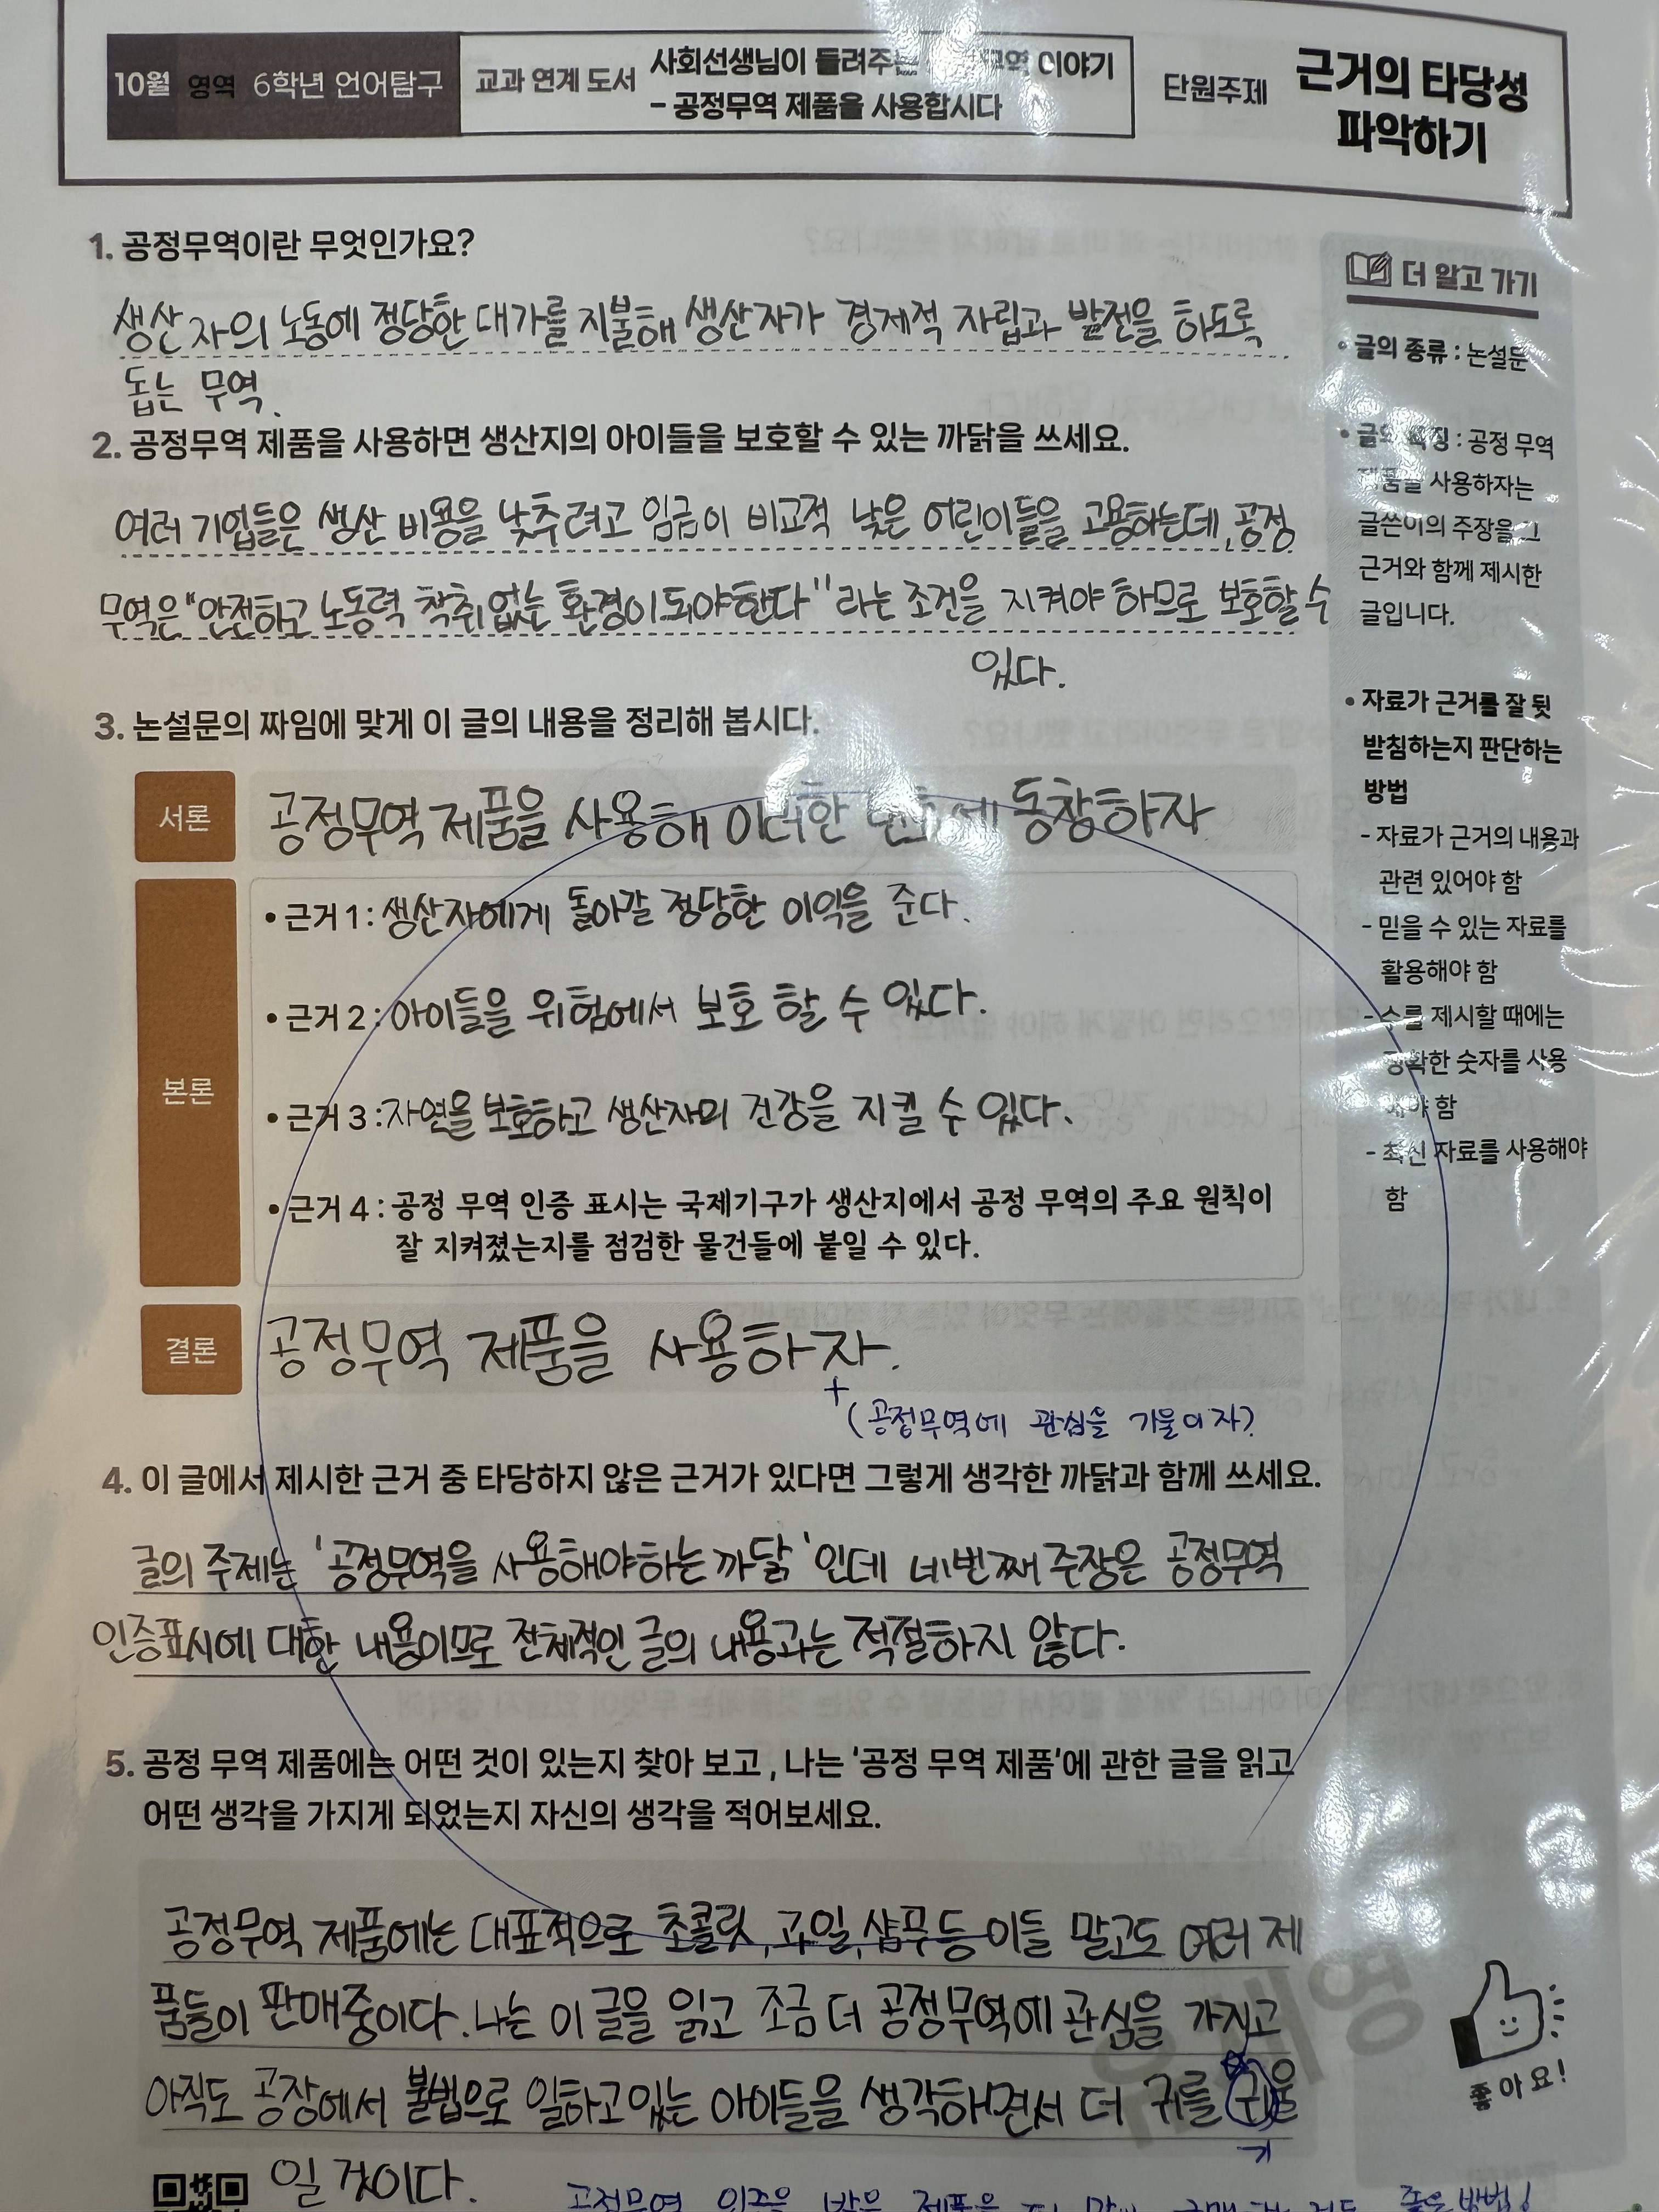 10월 영역 6학년 언어탐구
교과 연계 도서
사회선생님이 들려주는 이야기
- 공정무역 제품을 사용합시다
단원주제
근거의 타당성
파악하기
1. 공정무역이란 무엇인가요?
생산자의 노동에 정당한 대가를 지불해 생산자가 경제적 자립과 발전을 하도록
돕는 무역.
2. 공정무역 제품을 사용하면 생산지의 아이들을 보호할 수 있는 까닭을 쓰세요.
여러 기업들은 생산 비용을 낮추려고 임금이 비교적 낮은 어린이들을 고용하는데, 공정
무역은 "안전하고 노동력 착취 없는 환경이 되야한다"라는 조건을 지켜야 하므로 보호할 수
있다.
3. 논설문의 짜임에 맞게 이 글의 내용을 정리해 봅시다.
서론
공정무역 제품을 사용해 이러한 동참하자
본론
• 근거 1 : 생산자에게 돌아갈 정당한 이익을 준다.
• 근거 2 : 아이들을 위험에서 보호 할 수 있다.
• 근거 3 : 자연을 보호하고 생산자의 건강을 지킬 수 있다.
• 근거 4 : 공정 무역 인증 표시는 국제기구가 생산지에서 공정 무역의 주요 원칙이
잘 지켜졌는지를 점검한 물건들에 붙일 수 있다.
결론
공정무역 제품을 사용하자.
+
(공정무역에 관심을 기울이자?
4. 이 글에서 제시한 근거 중 타당하지 않은 근거가 있다면 그렇게 생각한 까닭과 함께 쓰세요.
글의 주제는 '공정무역을 사용해야하는 까닭'인데 네번째 주장은 공정무역
인증표시에 대한 내용이므로 전체적인 글의 내용과는 적절하지 않다.
5. 공정 무역 제품에는 어떤 것이 있는지 찾아 보고, 나는 '공정 무역 제품'에 관한 글을 읽고
어떤 생각을 가지게 되었는지 자신의 생각을 적어보세요.
공정무역 제품에는 대표적으로 초콜릿, 과일, 샴푸 등 이들 말고도 여러 제
품들이 판매중이다. 나는 이 글을 읽고 조금 더 공정무역에 관심을 가지고
아직도 공장에서 불법으로 일하고 있는 아이들을 생각하면서 더 귀를 귀울
기
일 것이다.
공정무역 인증을 받은 제품을 좋은 방법!
더 알고 가기
• 글의 종류 : 논설문
• 글의 특징 : 공정 무역
제품을 사용하자는
글쓴이의 주장을 그
근거와 함께 제시한
글입니다.
• 자료가 근거를 잘 뒷
받침하는지 판단하는
방법
- 자료가 근거의 내용과
관련 있어야 함
- 믿을 수 있는 자료를
활용해야 함
- 수를 제시할 때에는
정확한 숫자를 사용
해야 함
- 최신 자료를 사용해야
함
좋아요!